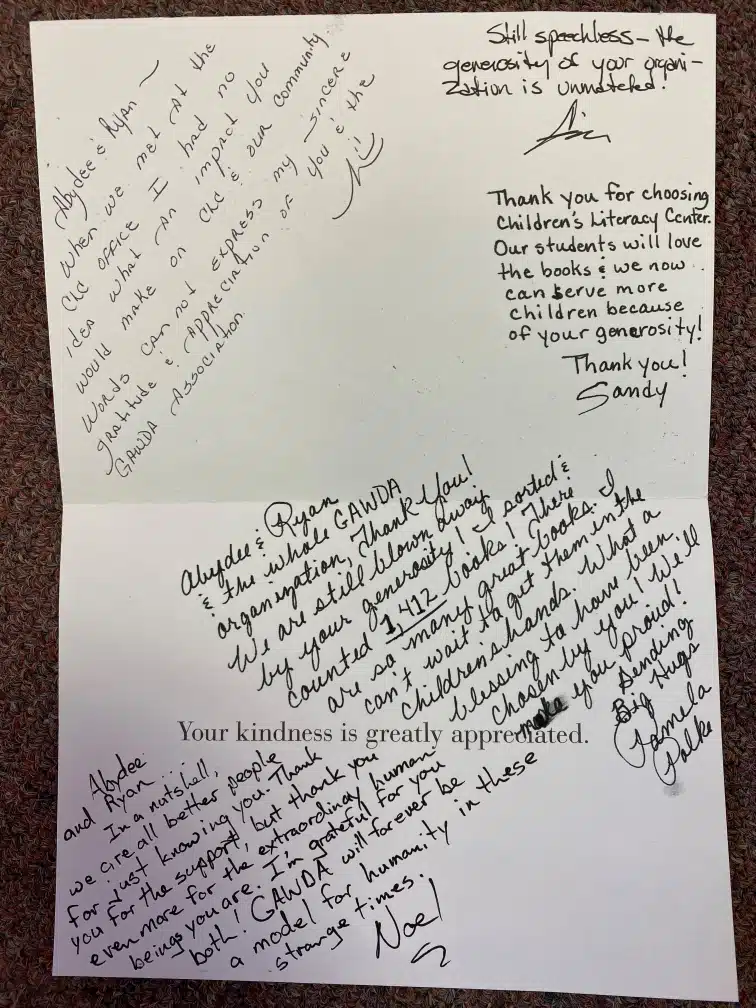 Abydee & Ryan —
When we met at the
CLC office I had no
idea what an impact you
would make on CLC & our community.
Words can not express my sincere
gratitude & appreciation of you & the
GAWDA Association
Still speechless – the
generosity of your organi-
zation is unmatched!
Thank you for choosing
Children's Literacy Center.
Our students will love
the books & we now
can serve more
children because
of your generosity!
Thank you!
Sandy
Abydee & Ryan
& the whole GAWDA
organization, Thank You!
We are still blown away
by your generosity! I sorted &
counted 1,412 books! There
are so many great books. I
can't wait to get them in the
children's hands. What a
blessing to have been
chosen by you! We'll
make you proud!
Sending
Big Hugs
Pamela
Polke
Your kindness is greatly appreciated.
Abydee
and Ryan...
In a nutshell,
we are all better people
for just knowing you. Thank
you for the support, but thank you
even more for the extraordinary human
beings you are. I'm grateful for you
both! GAWDA will forever be
a model for humanity in these
strange times.
Noel